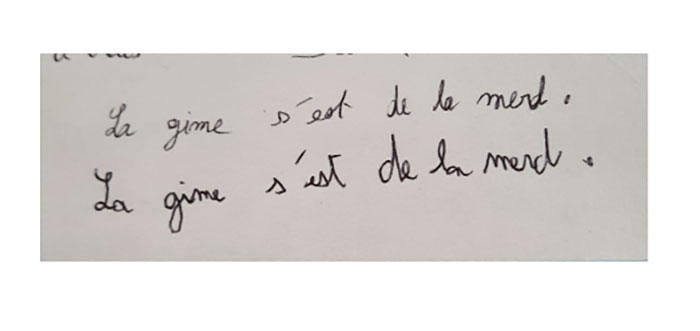 La gime s'est de la merd.
La gime s'est de la merd.